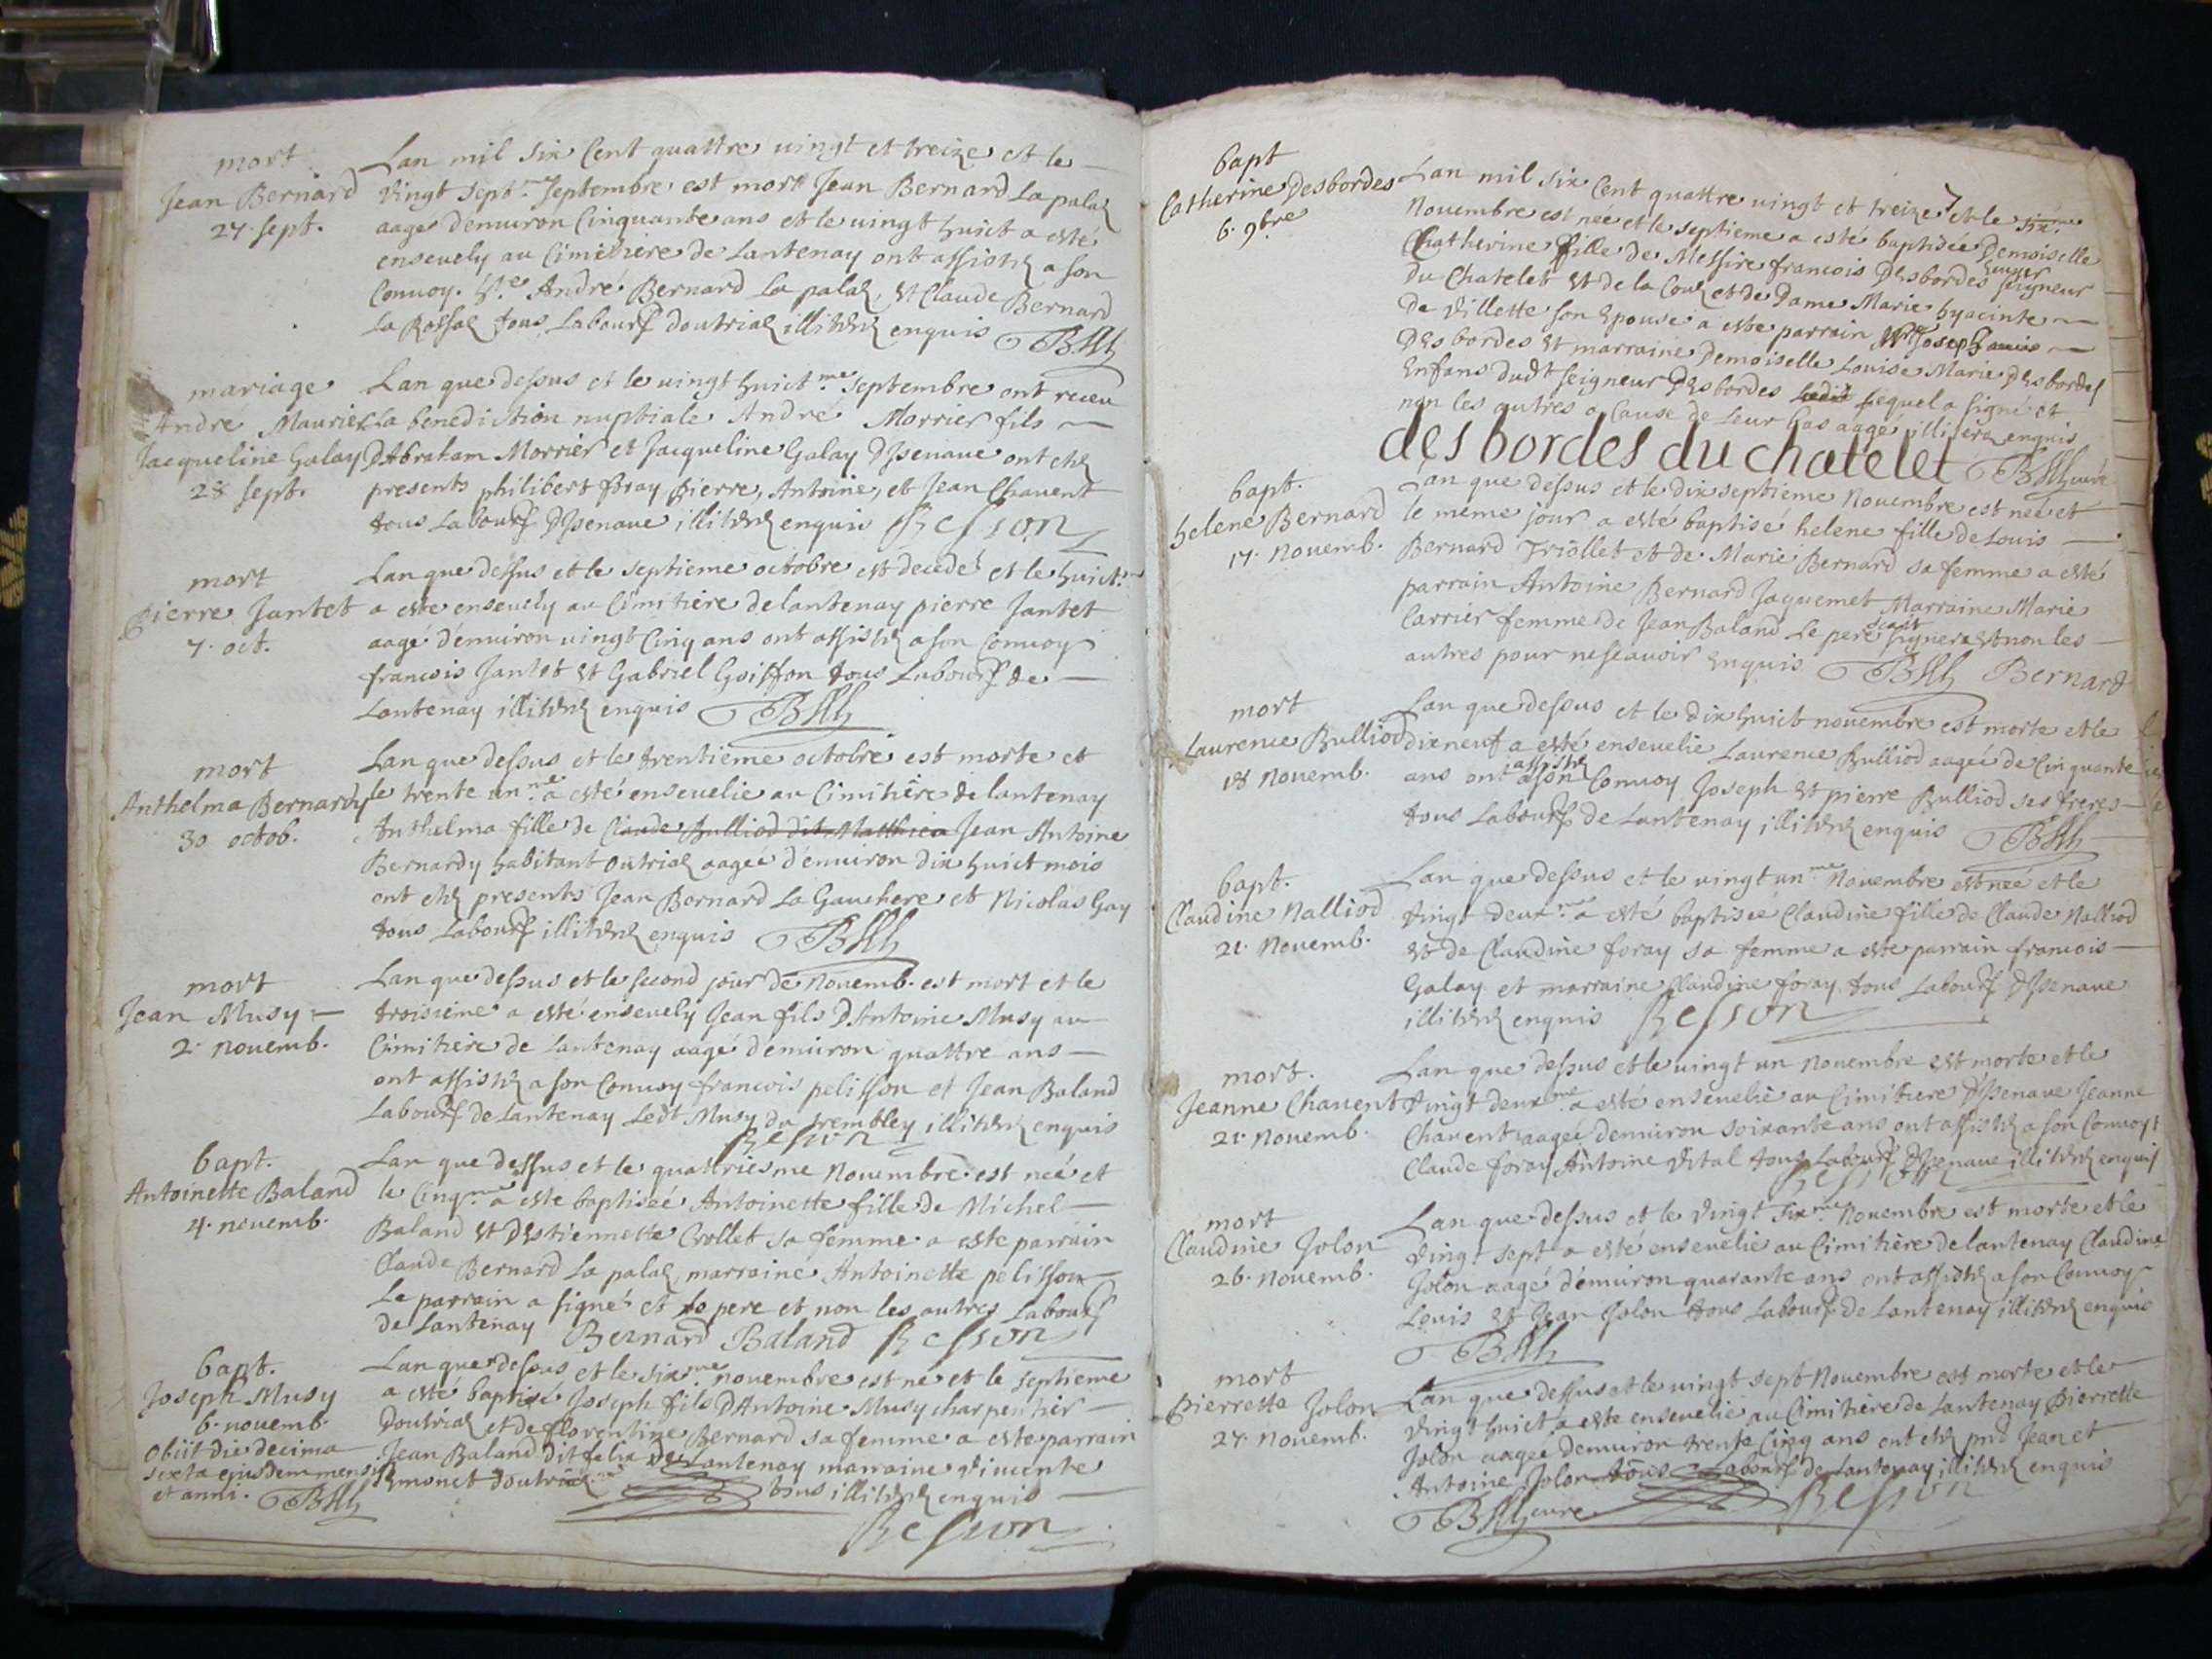 mort
Jean Bernard
27. sept.
Lan mil six Cent quattre uingt et treize et le
Vingt sept.me septembre est mort Jean Bernard La palaz
aagé denuiron Cinquante ans et le uingt huict a esté
enseuely au Cimetiere de Lantenay ont assistez a son
Conuoy. André Bernard La palaz, et Claude Bernard
La Rossaz tous Labours doutriaz illiterez enquis
mariage
Andre Maurier
Jacqueline Galay
28 sept.
Lan que dessus et le uingt huict.me septembre ont receu
La benediction nuptiale André Morrier fils
D'Abraham Morrier et Jacqueline Galay D'Isenaue ont estez
presents philibert foray Pierre, Antoine, et Jean Chauent
tous Labours D'Isenaue illiterez enquis Besson
mort
Pierre Jantet
7. oct.
Lan que dessus et le septieme octobre est decedé et le huict.me
a este enseuely au Cimitiere de lantenay pierre Jantet
aagé d'enuiron uingt Cinq ans ont assistez a son Conuoy
francois Jantet et Gabriel Goiffon tous Labours de
Lantenay illiterez enquis
mort
Anthelma Bernardy
30 octob.
Lan que dessus et le trentieme octobre est morte et
le trente un.me a esté enseuelie au Cimitiere de lantenay
Anthelma fille de Claude Bulliod dit Matthieu Jean Antoine
Bernardy habitant Outriaz aagée d'enuiron dix huict mois
ont estez presents Jean Bernard La Gauchere et Nicolas Gay
tous Labours illiterez enquis
mort
Jean Musy
2. nouemb.
Lan que dessus et le second jour de Nouemb. est mort et le
troisieme a esté enseuely Jean fils D'Antoine Musy au
Cimitiere de Lantenay aagé d'enuiron quattre ans
ont assistez a son Conuoy francois pelisson et Jean Baland
Labours de Lantenay Ledt Musy du trembley illiterez enquis
Besson
bapt.
Antoinette Baland
4. nouemb.
Lan que dessus et le quattriesme Nouembre est neé et
le Cinq.me a este baptiseé Antoinette fille de Michel
Baland et D'Estiennette Crollet sa femme a este parrain
Claude Bernard La palaz, marraine Antoinette pelisson
Le parrain a signé et Le pere et non les autres Labours
de Lantenay Bernard Baland Besson
bapt.
Joseph Musy
6. nouemb.
Obiit die decima
sexta ejusdem mensis
et anni.
Lan que dessus et le six.me nouembre est né et le septieme
a esté baptisé Joseph fils D'Antoine Musy charpentier
Doutriaz et de florentine Bernard sa femme a este parrain
Jean Baland dit felix De Lantenay marraine Viuente
Emonet Doutriaz tous illiterez enquis
Besson
bapt
Catherine Desbordes
6. 9bre
Lan mil six Cent quattre uingt et treize et le six.me
Nouembre est née et le septieme a esté baptisée Demoiselle
Chatherine fille de Messire francois Desbordes seigneur
du Chatelet et de la Couz et de Dame Marie hyacinte
De Villette son Epouse a este parrain Joseph
Des bordes et marraine Demoiselle Louise Marie Desbordes
Enfans dudt seigneur Desbordes lequel a signé et
non les autres a Cause de Leur bas aage illiterez enquis
des bordes du chatelet
bapt.
helene Bernard
17. Nouemb.
Lan que dessus et le dix septieme Nouembre est neé et
le meme jour a esté baptisé helene fille de Louis
Bernard Triollet et de Marie Bernard sa femme a esté
parrain Antoine Bernard Jaquemet Marraine Marie
Carrier femme de Jean Baland Le pere scait signer et non les
autres pour ne scauoir Enquis Bernard
mort
Laurence Bulliod
18 Nouemb.
Lan que dessus et le dix huict nouembre est morte et le
dix neuf a esté enseuelie Laurence Bulliod aageé de Cinquante
ans ont assistez a son Conuoy Joseph et pierre Bulliod ses freres
tous Labours de Lantenay illiterez enquis
bapt.
Claudine Nalliod
21. Nouemb.
Lan que dessus et le uingt un.me Nouembre est neé et le
Vingt deux.me a esté baptiseé Claudine fille de Claude Nalliod
et de Claudine foray sa femme a este parrain francois
Galay et marraine Claudine foray tous Labours D'Isenaue
illiterez enquis Besson
mort.
Jeanne Chauent
21. Nouemb.
Lan que dessus et le uingt un Nouembre est morte et le
Vingt deux.me a esté enseuelie au Cimitiere D'Isenaue Jeanne
Chauent aageé denuiron soixante ans ont assistez a son Conuoy
Claude foray Antoine Vital tous Labours D'Isenaue illiterez enquis
Besson
mort
Claudine Jolon
26. Nouemb.
Lan que dessus et le Vingt six.me Nouembre est morte et le
Vingt sept a esté enseuelie au Cimitiere de lantenay Claudine
Jolon aagé d'enuiron quarante ans ont assistez a son Conuoy
Louis et Jean Jolon tous Labours de Lantenay illiterez enquis
mort
Pierrette Jolon
27. Nouemb.
Lan que dessus et le uingt sept Nouembre est morte et le
Vingt huict a este enseuelie au Cimitiere de Lantenay Pierrette
Jolon aageé denuiron trente Cinq ans ont estez pnts Jean et
Antoine Jolon tous Labours de Lantenay illiterez enquis
cure Besson